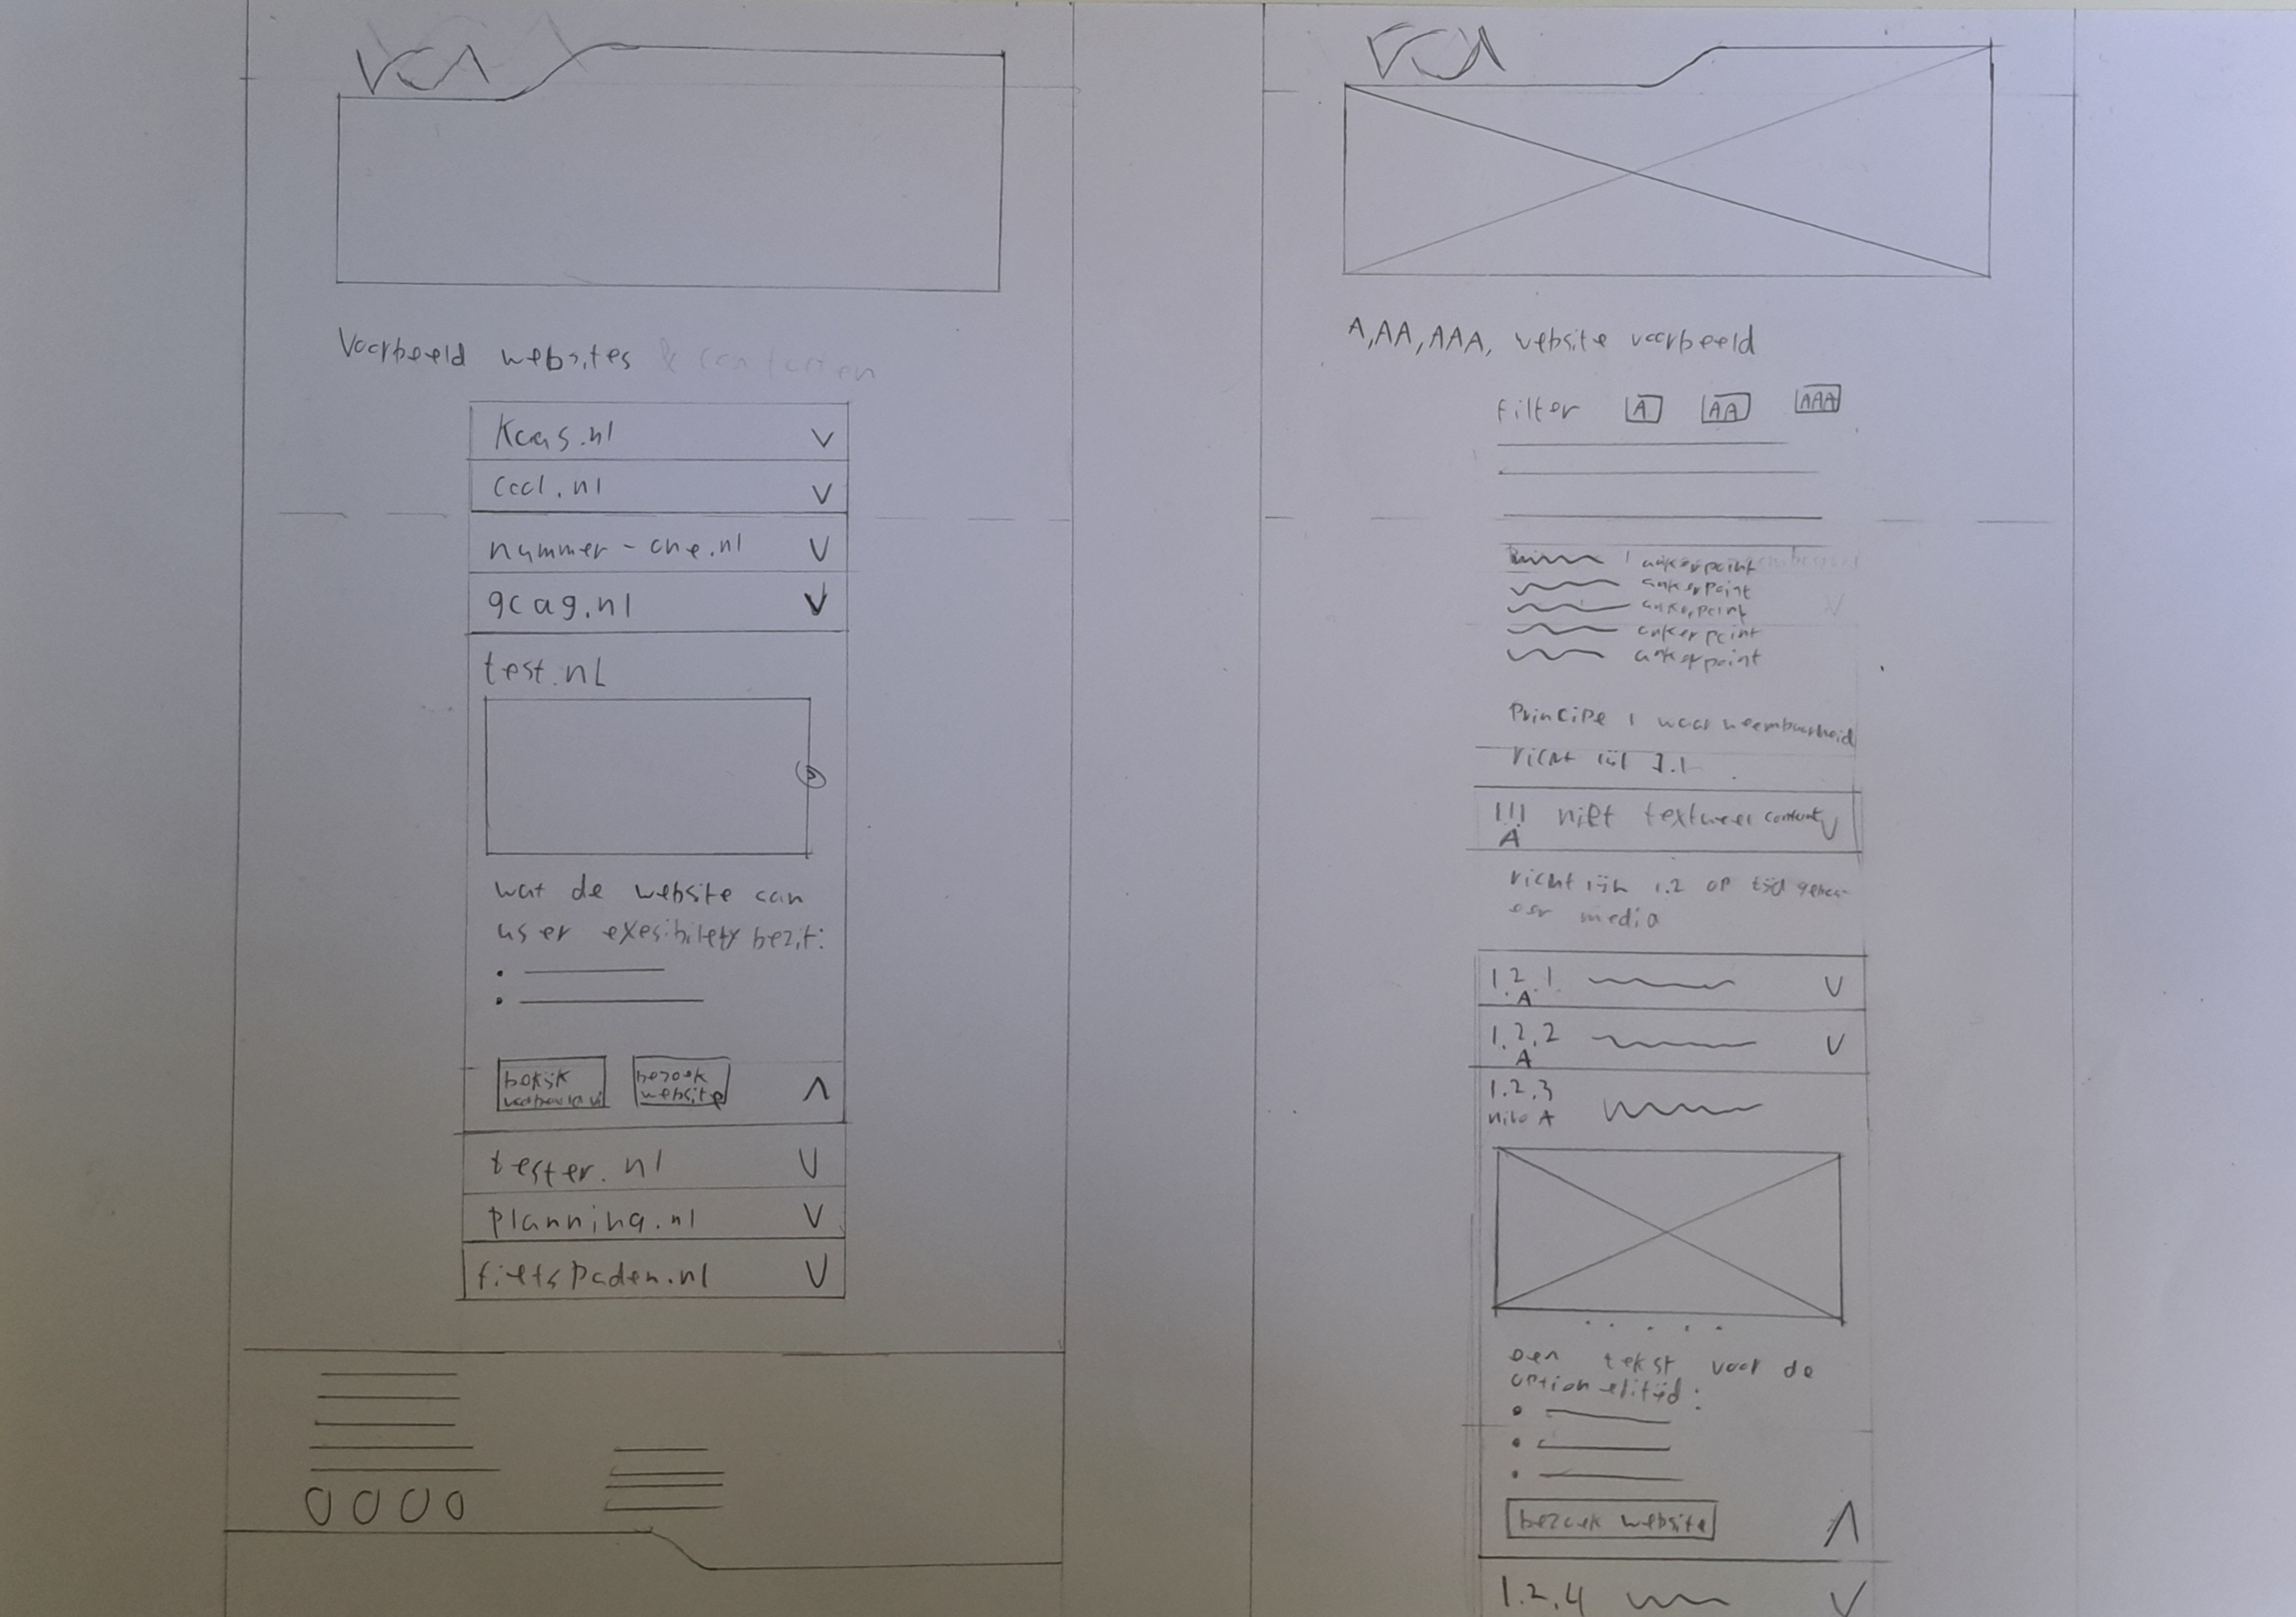 VCA
Voorbeeld websites &
Kcas.nl V
cccl.nl V
nummer-one.nl V
gcag.nl V
test.nl
wat de website aan
user exesibiletx bezit:
bekijk
bezoek
website
tester.nl V
planning.nl V
fietspaden.nl V
VCA
A, AA, AAA, website voorbeeld
Filter A AA AAA
1 ankerpoint
ankerpoint
ankerpoint
ankerpoint
ankerpoint
Principe 1 waarneembaarheid
1.1
niet content V
A
richtlijn 1.2 op tijd
media
1.2.1. V
A
1.2.2 V
A
1.2.3
nivo A
een tekst voor de
bezoek website
1.2.4 V